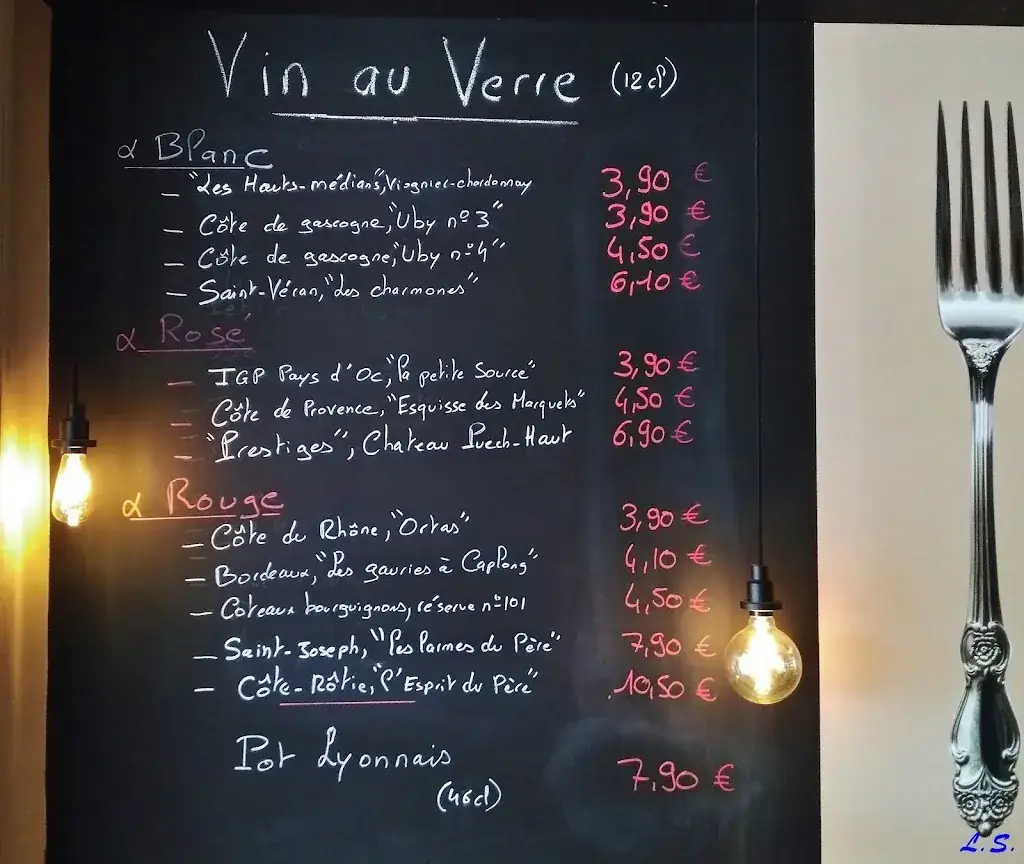 Vin au Verre (12cl)
α Blanc
- "Les Hauts-médians", Viognier-chardonnay 3,90 €
- Côte de gascogne, "Uby n°3" 3,90 €
- Côte de gascogne, "Uby n°4" 4,50 €
- Saint-Véran, "Les charmones" 6,10 €
α Rosé
- IGP Pays d'Oc, "la petite Source" 3,90 €
- Côte de Provence, "Esquisse des Marquets" 4,50 €
- "Prestiges", Chateau Puech-Haut 6,90 €
α Rouge
- Côte du Rhône, "Ortas" 3,90 €
- Bordeaux, "Les gauries à Caplong" 4,10 €
- Coteaux bourguignons, réserve n°101 4,50 €
- Saint-Joseph, "Les larmes du Père" 7,90 €
- Côte-Rôtie, "l'Esprit du Père" 10,50 €
Pot Lyonnais 7,90 €
(46cl)
L.S.